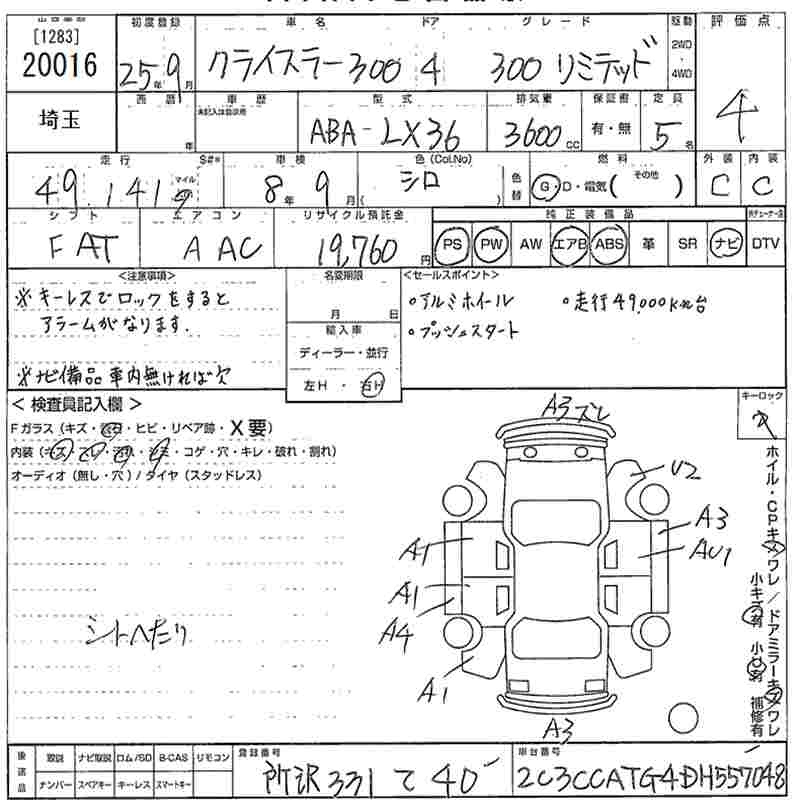 [1283]
20016
初度登録 車名 ドア グレード 駆動 評価点
25年9月 クライスラー300 4 300 リミテッド 2WD・4WD
4
埼玉
西暦 車歴 型式 排気量 保証書 定員
未記入は自家用
年 ABA-LX36 3600cc 有・無 5名
走行 S#* 車検 色(Col.No) 色替 燃料 外装 内装
49,141 マイル 8年9月 シロ G・D・電気(その他) C C
シフト エアコン リサイクル預託金 純正装備品
FAT AAC 19,760円 PS PW AW エアB ABS 革 SR ナビ DTV
<注意事項> 名変期限 <セールスポイント>
※キーレスでロックをすると
アラームがなります.
※ナビ備品車内無ければ欠
月 日
輸入車
ディーラー・並行
左H・右H
・アルミホイール ・走行49,000km台
・プッシュスタート
<検査員記入欄>
Fガラス(キズ・飛石・ヒビ・リペア跡・X要)
内装(キズ・コゲ・穴・キレ・破れ・割れ)
オーディオ(無し・穴)/タイヤ(スタッドレス)
シートへたり
キーロック
ホイル・CPキズワレ/ドアミラーキズワレ
小キズ有 小凹有 補修有
A3ズレ
U2
A3
A1
AU1
A1
A4
A1
A3
後送品 取説 ナビ取説 ロム/SD B-CAS リモコン
ナンバー スペアキー キーレス スマートキー
登録番号 車台番号
所沢 331 て 40 2C3CCATG4DH557048